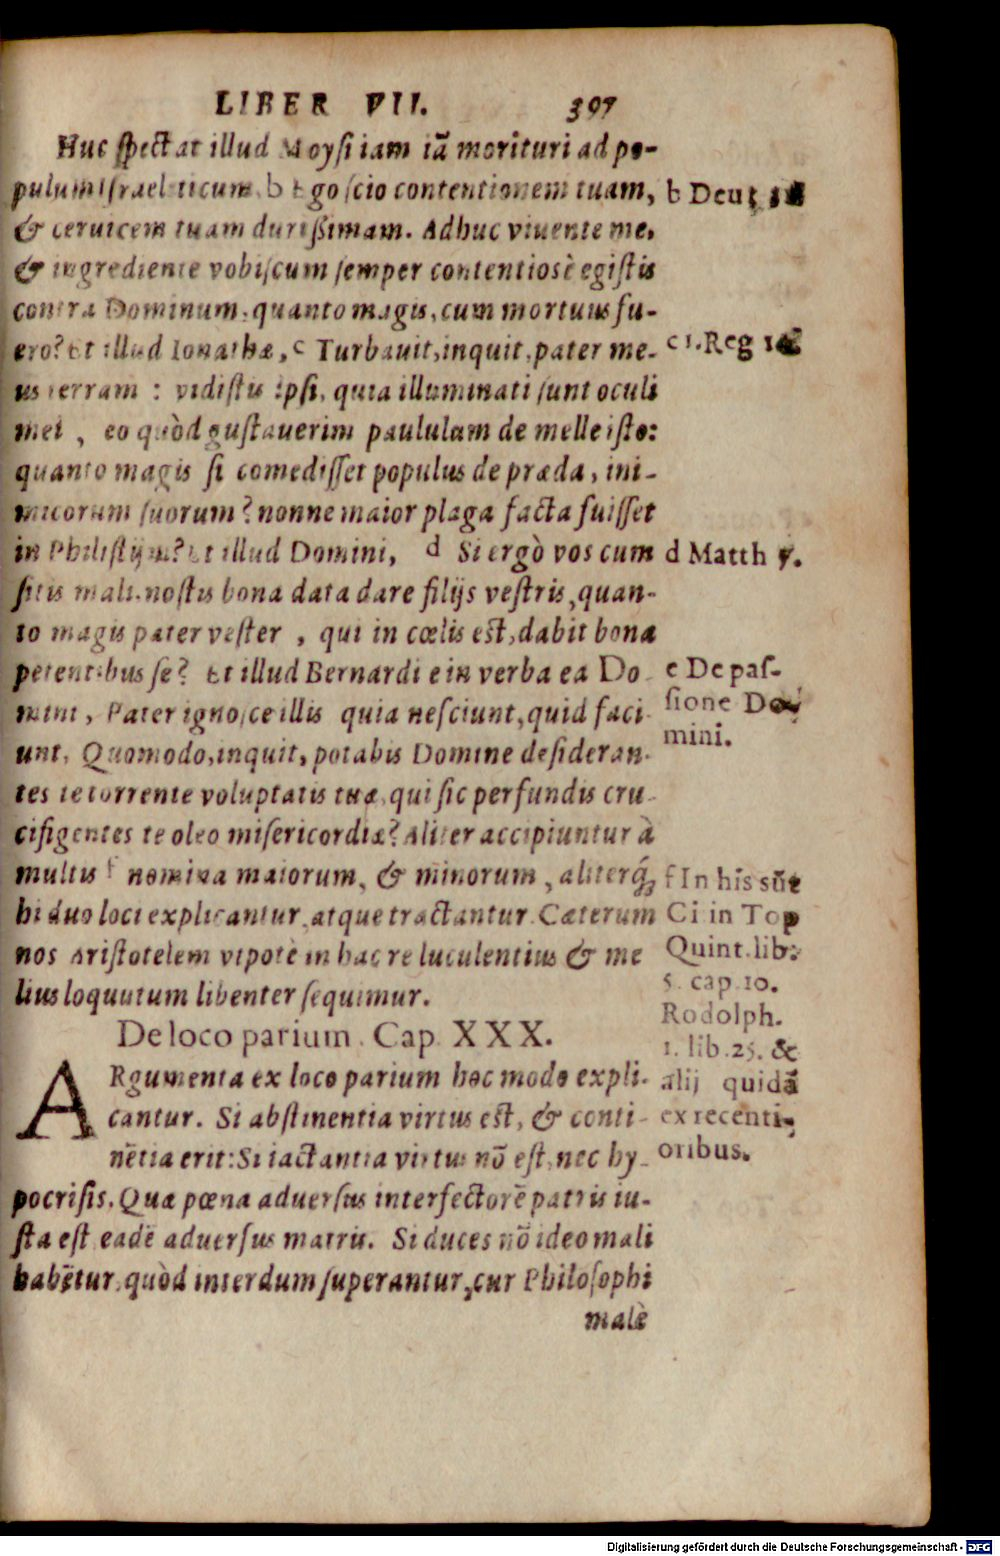 LIBER VII. 397
Huc spectat illud Moysi iam iã morituri ad po-
pulum Israeliticum. b Ego scio contentionem tuam,
& ceruicem tuam durißimam. Adhuc viuente me,
& ingrediente vobiscum semper contentiosè egistis
contra Dominum, quanto magis, cum mortuus fu-
ero? Et illud Ionathæ, c Turbauit, inquit, pater me-
us terram : vidistis ipsi, quia illuminati sunt oculi
mei , eo quòd gustauerim paululum de melle isto:
quanto magis si comedisset populus de præda, ini-
micorum suorum? nonne maior plaga facta fuisset
in Philistijm? Et illud Domini, d Si ergò vos cum
sitis mali, nostis bona data dare filijs vestris, quan-
to magis pater vester , qui in cœlis est, dabit bona
petentibus se? Et illud Bernardi e in verba ea Do-
mini, Pater ignosce illis quia nesciunt, quid faci-
unt. Quomodo, inquit, potabis Domine desideran-
tes te torrente voluptatis tuæ, qui sic perfundis cru-
cifigentes te oleo misericordiæ? Aliter accipiuntur à
multis f nomina maiorum, & minorum, aliterq́;
hi duo loci explicantur, atque tractantur. Cæterum
nos Aristotelem vtpotè in hac re luculentius & me
lius loquutum libenter sequimur.
De loco parium. Cap. XXX.
ARgumenta ex loco parium hoc modo expli-
cantur. Si abstinentia virtus est, & conti-
nẽtia erit: Si iactantia virtus nõ est, nec hy-
pocrisis. Quæ pœna aduersus interfectorẽ patris iu-
sta est eadẽ aduersus matris. Si duces nõ ideo mali
habẽtur, quòd interdum superantur, cur Philosophi
malè
b Deut.
c 1. Reg 14
d Matth 7.
e De pas-
sione Do-
mini.
f In his sũt
Ci in Top
Quint. lib.
5. cap. 10.
Rodolph.
1. lib. 25. &
alij quidã
ex recenti-
oribus.
Digitalisierung gefördert durch die Deutsche Forschungsgemeinschaft - DFG